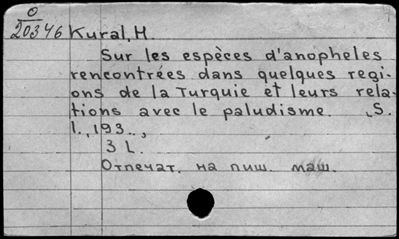 O
20346 Kural, H.
Sur les espèces d'anopheles
rencontrées dans quelques regi-
ons de la Turquie et leurs rela-
tions avec le paludisme. S.
l., 193..,
3 L.
Отпечат. на пиш. маш.